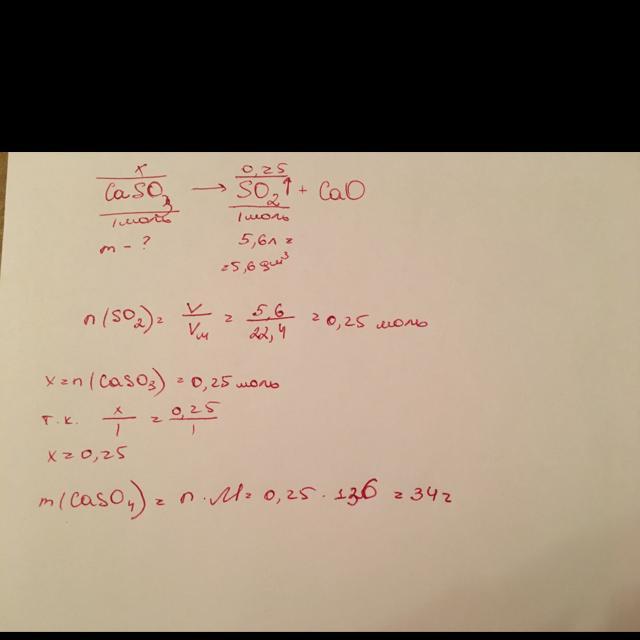 x 0,25
CaSO3 → SO2↑ + CaO
1 моль 1 моль
m - ? 5,6 л =
= 5,6 дм³
n(SO2) = V/Vм = 5,6/22,4 = 0,25 моль
x = n(CaSO3) = 0,25 моль
т.к. x/1 = 0,25/1
x = 0,25
m(CaSO4) = n · M = 0,25 · 136 = 34 г